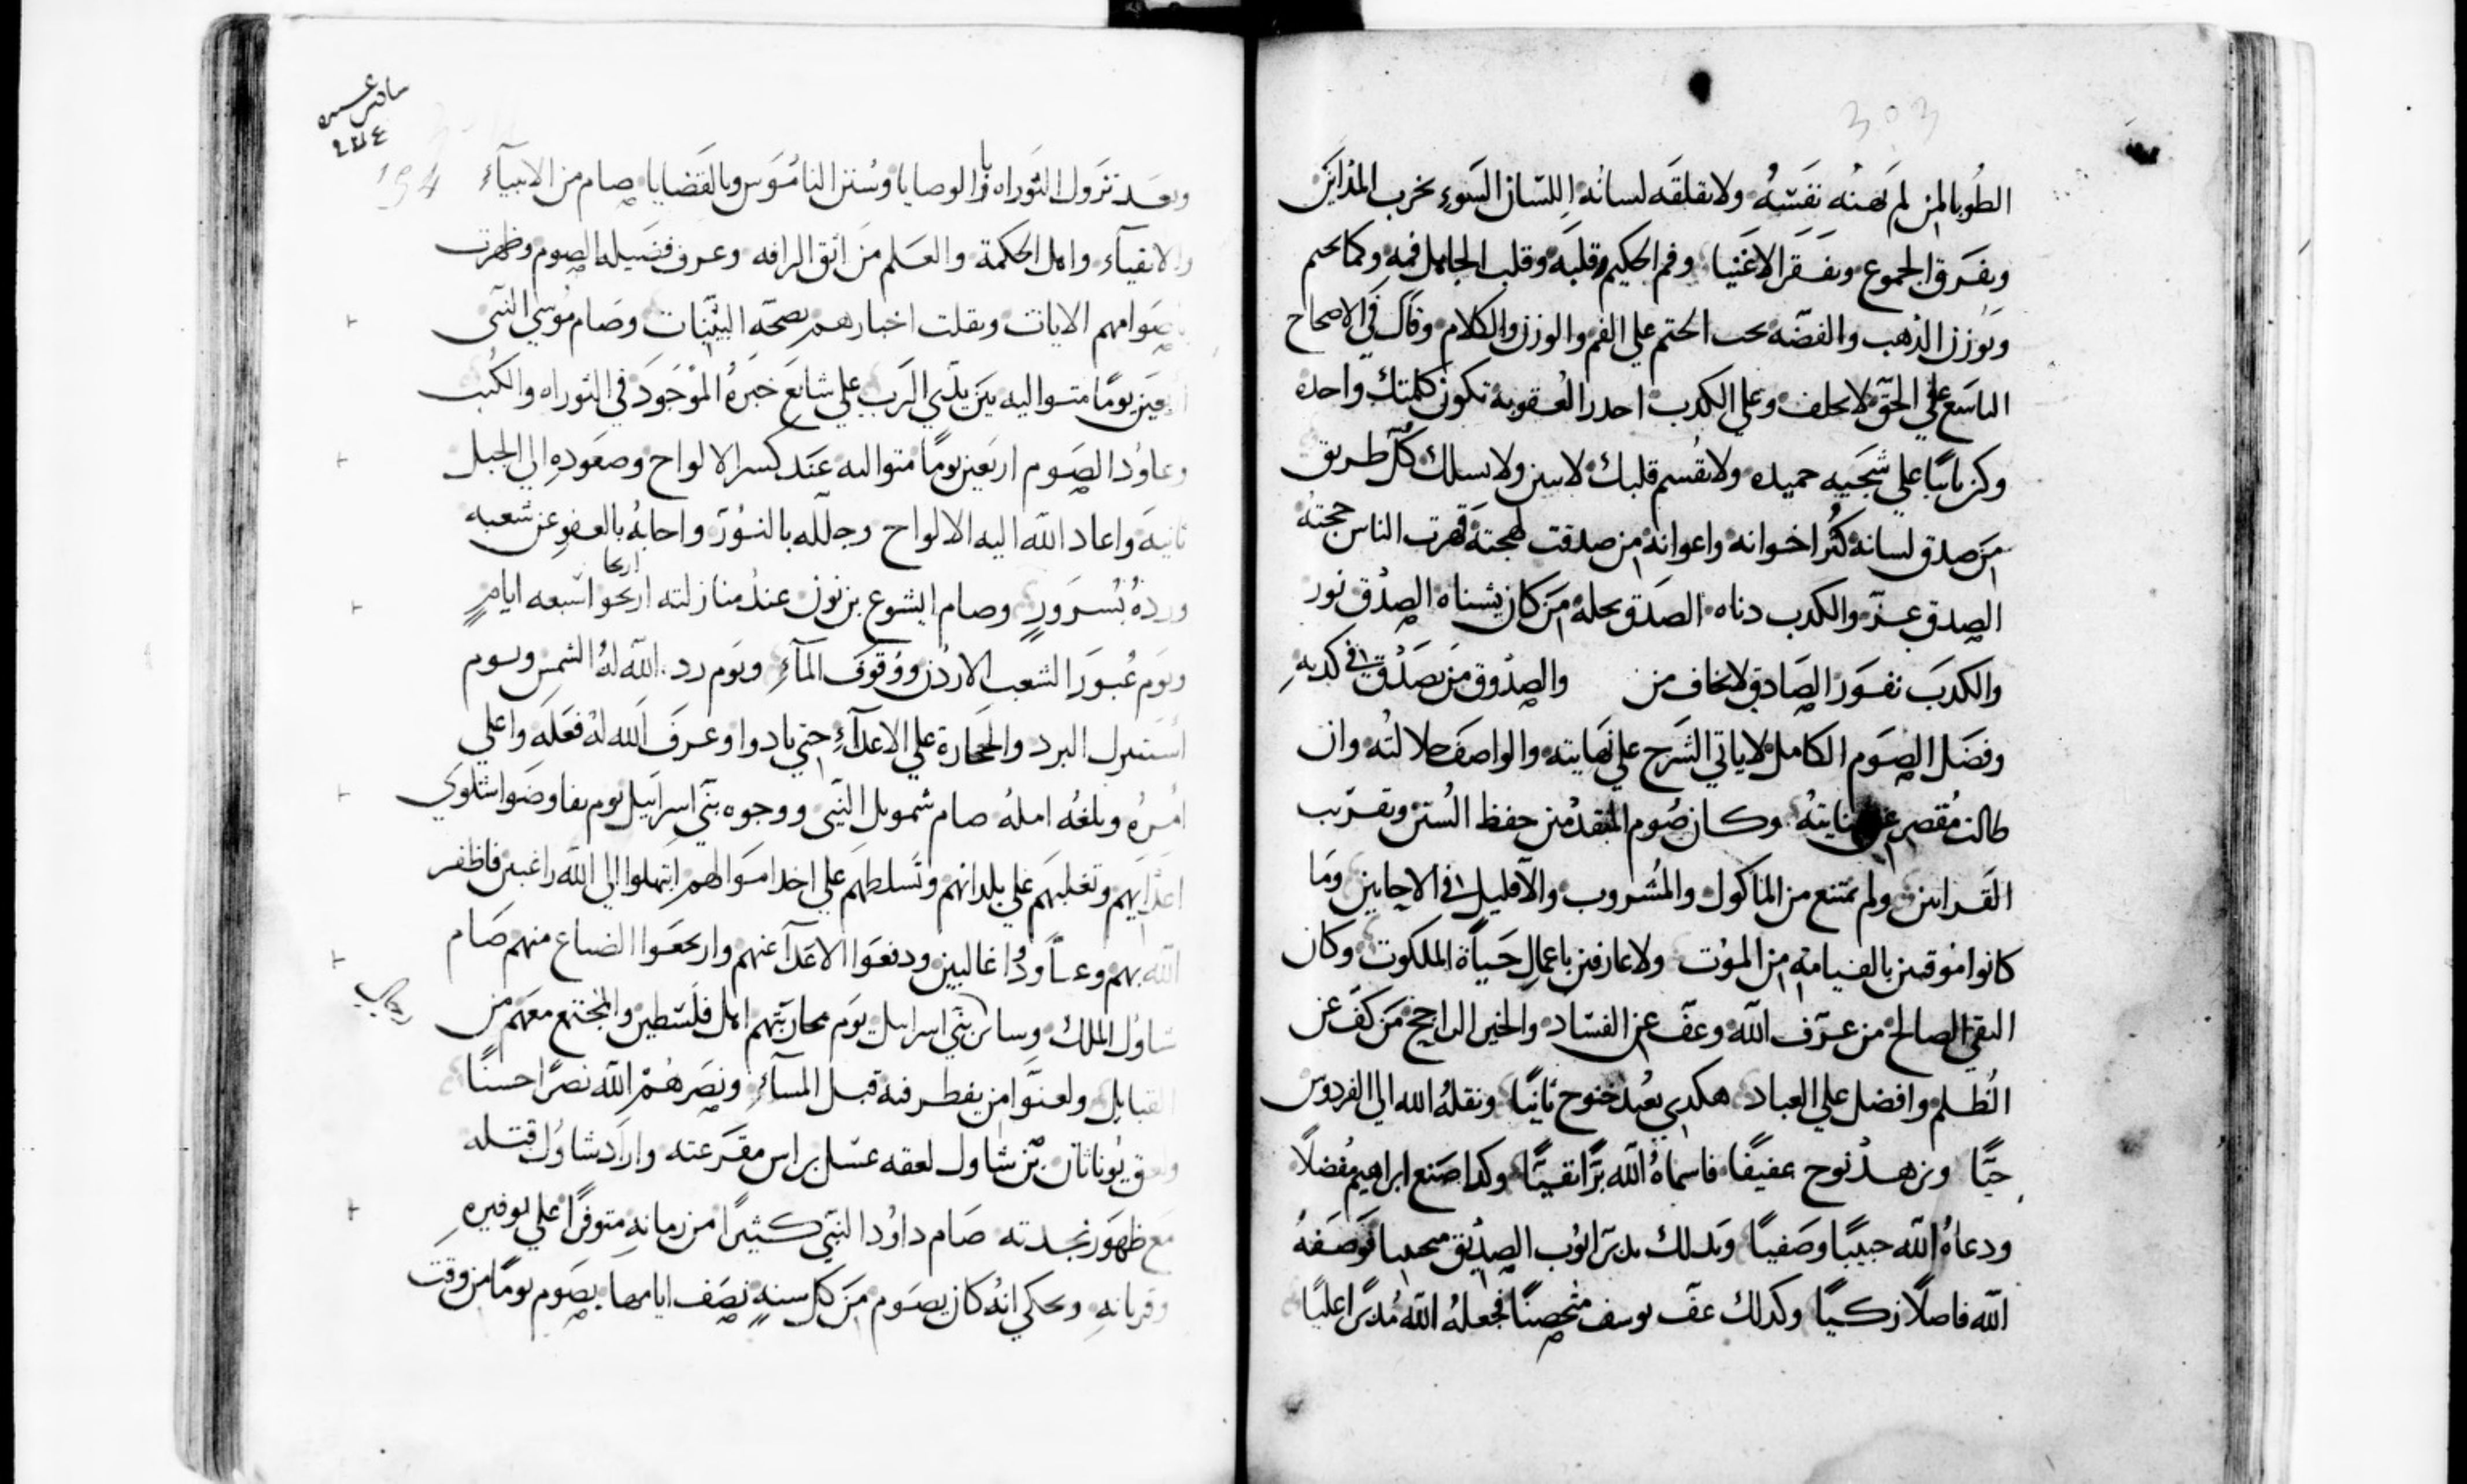 303
الطُوبا لمن لم تهنه نفسه ولا تقلقه لسانه اللسان السوء يخرب المداين
ويفرق الجموع ويفقر الاغنيا وفم الحكيم قلبه وقلب الجاهل فمه وكما يختم
ويوزن الذهب والفضه يجب الختم علي الفم والوزن والكلام وقال في الاصحاح
التاسع علي الحق لا تحلف وعلي الكدب احدر العقوبة تكون كلمتك واحده
وكن ثابتا علي شجيه حميده ولا تقسم قلبك لاسن ولا تسلك كل طريق
من صدق لسانه كثر اخوانه واعوانه من صدقت لهجته قهرت الناس حجته
الصدق عز والكدب دناه الصدق بحله من كان يشناه الصدق نور
والكدب نفور الصادق لا يخاف من والصدوق من يصدق في كدبه
وفضل الصوم الكامل لا ياتي الشرح علي نهايته والواصف جلالته وان
طالت مقصر عن غايته وكان صوم المتقدمين حفظ السنن وتقريب
القرابين ولم يمتنع من الماكول والمشروب والا قليل في الاحايين وما
كانوا موقنين بالقيامة من الموت ولا عارفين باعمال حياة الملكوت وكان
التقي الصالح من عرف الله وعف عن الفساد والخير الراجح من كف عن
الظلم وافضل علي العباد هكدي بعبد خنوخ ثانيا ونقله الله الي الفردوس
حيا وزهد نوح عفيفا فاسماه الله برا تقيا وكدا صنع ابراهيم مفضلا
ودعاه الله حبيبا وصفيا وبدلك تدبر ايوب الصديق فوصفه
الله فاضلا زكيا وكدلك عف يوسف متحصنا فجعله الله مدبرا عليا
سادس عشره
194
وبعد نزول التوراه والوصايا وسنن الناموس وبالقضايا صام من الانبياء
والاتقياء واهل الحكمة والعلم من اثق الرافه وعرف فضيله الصوم وظهرت
بصوامهم الايات ونقلت اخبارهم بصحة البينات وصام موسي النبي
اربعين يوما متواليه بين يدي الرب علي شايع خبره الموجود في التوراه والكتب
وعاود الصوم اربعين يوما متواليه عند كسر الالواح وصعوده الي الجبل
ثانية واعاد الله اليه الالواح وجلله بالنور واجابه بالعفو عن شعبه
ورده بسرور وصام ايشوع بن نون عند منازلته اريحوا سبعه ايام
اريحا
ويوم عبور الشعب الاردن ووقوف الماء ويوم رد الله له الشمس ويوم
استنزل البرد والحجارة علي الاعداء حتي بادوا وعرف الله له فعله واعلي
امره وبلغه امله صام شمويل النبي ووجوه بني اسرايل يوم تفاوضوا شكوي
اعدايهم وتغلبهم علي بلدانهم وتسلطهم علي اخد اموالهم ابتهلوا الي الله راغبين فاظفر
الله بهم وعاودوا غالبين ودفعوا الاعدا عنهم وارتجعوا الضياع منهم صام
شاول الملك وساير بني اسرايل يوم محاربتهم اهل فلسطين والمجتمع معهم من
القبايل ولعنوا من يفطر فيه قبل المساء ونصرهم الله نصرا حسنا
ولعق يوناثان بن شاول لعقه عسل براس مقرعته واراد شاول قتله
مع ظهور نجدته صام داود النبي كثيرا من زمانه متوفرا علي توفيره
وقربانه وحكي انه كان يصوم من كل سنه نصف ايامها يصوم يوما من وقت